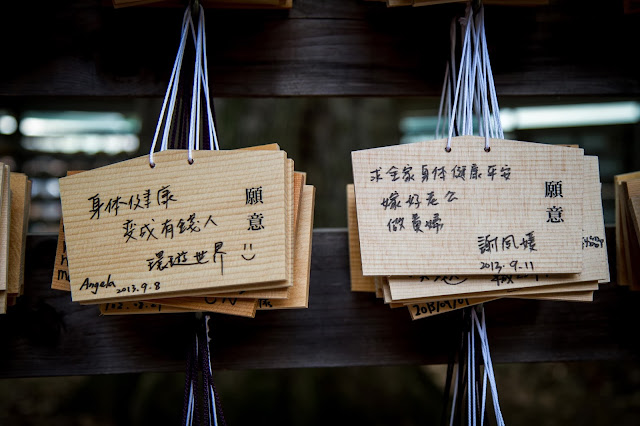 願意
身体健康
变成有錢人
環遊世界
Angela
2013.9.8
願意
求全家身体健康平安
嫁好老公
做貴婦
謝
2013.9.11
2013/09/01